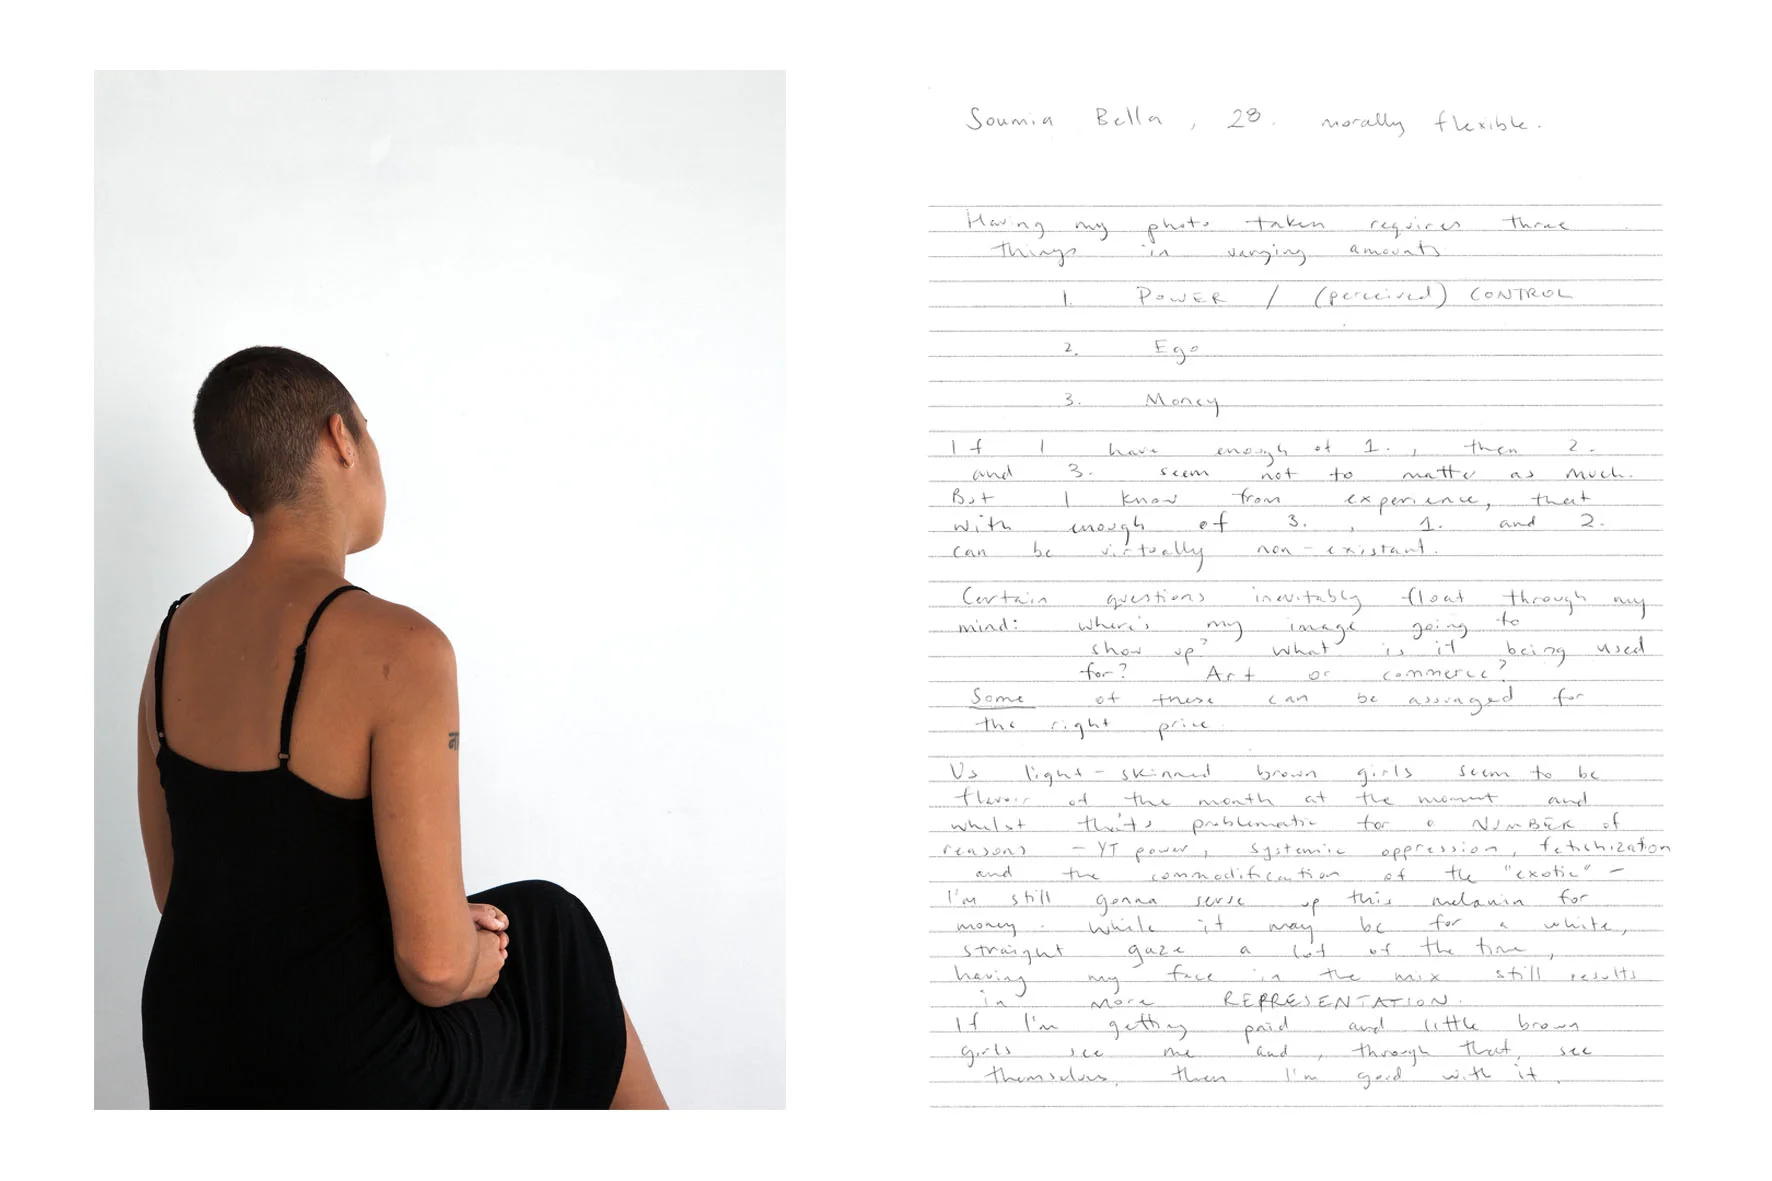 Soumia Bella, 28. morally flexible.
Having my photo taken requires three
things in varying amounts
1. POWER / (perceived) CONTROL
2. Ego
3. Money
If I have enough of 1., then 2.
and 3. seem not to matter as much.
But I know from experience, that
with enough of 3., 1. and 2.
can be virtually non-existant.
Certain questions inevitably float through my
mind: where's my image going to
show up? What is it being used
for? Art or commerce?
Some of these can be assuaged for
the right price.
Us light-skinned brown girls seem to be
flavour of the month at the moment and
whilst that's problematic for a NUMBER of
reasons - YT power, systemic oppression, fetishization
and the commodification of the "exotic" -
I'm still gonna serve up this melanin for
money. While it may be for a white,
straight gaze a lot of the time,
having my face in the mix still results
in more REPRESENTATION.
If I'm getting paid and little brown
girls see me and, through that, see
themselves, then I'm good with it.
ना